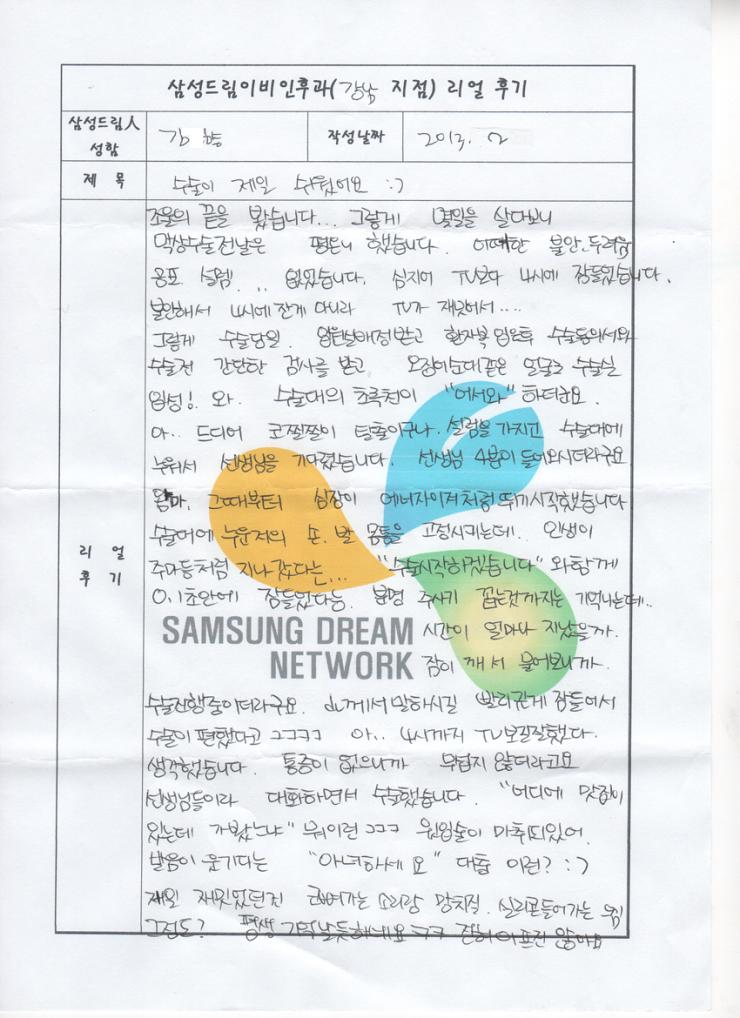 삼성드림이비인후과(강남 지점) 리얼 후기
삼성드림人 성함
김
작성날짜
2013. 2
제 목
수술이 제일 쉬웠어요 :7
리 얼 후 기
조울의 끝을 봤습니다... 그렇게 몇일을 살다보니
막상수술전날은 평온하 했습니다. 어떠한 불안.두려움
공포 설렘... 없었습니다. 심지어 TV보다 4시에 잠들었습니다.
불안해서 4시에 잔게 아니라 TV가 재밋어서....
그렇게 수술당일. 입원실배정받고 환자복 입은후 수술동의서와
수술전 간단한 검사를 받고 오장이순대같은 얼굴로 수술실
입성! 와. 수술대의 초록천이 "어서와" 하더군요.
아.. 드디어 코찔찔이 탈출이구나. 설렘을 가지고 수술대에
누워서 선생님을 기다렸습니다. 선생님 4분이 들어오시더라구요
엄마, 그때부터 심장이 에너자이저처럼 뛰기시작했습니다
수술대에 누운저의 손.발 몸통을 고정시키는데!.. 인생이
주마등처럼 지나갔다는... "수술시작하겠습니다" 와함께
0.1초안에 잠들었다능. 분명 주사기 꼽는것까지는 기억나는데..
SAMSUNG DREAM NETWORK
시간이 얼마나 지났을까.
잠이 깨서 물어보니까.
수술진행중이더라구요. 께서 말하시길 빨리깊게 잠들어서
수술이 편했다고 ㅋㅋㅋㅋ 아.. 4시까지 TV보길잘했다.
생각했습니다. 통증이 없으니까 무섭지 않더라고요
선생님들이랑 대화하면서 수술했습니다. "어디에 맛집이
있는데 가봤느냐" 뭐이런 ㅋㅋㅋ 윗입술이 마취되있어.
발음이 웃기다는 "아녀하세요" 대충 이런? :7
제일 재밋었던건 뼈가는 소리랑 망치질. 실리콘들어가는 느낌
그정도? 평생 기억날듯하네요 ㅋㅋ 전혀아프진 않아요